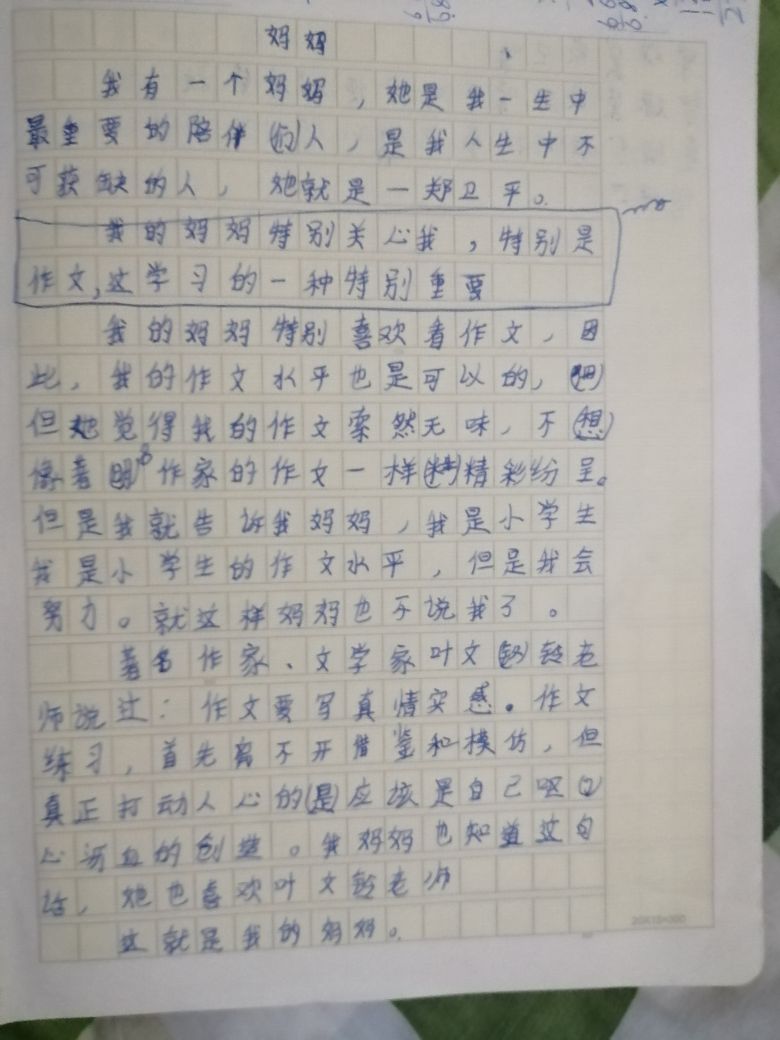 妈妈
我有一个妈妈，她是我一生中
最重要的陪伴人，是我人生中不
可获缺的人，她就是一郑卫平。
我的妈妈特别关心我，特别是
作文,这学习的一种特别重要
我的妈妈特别喜欢看作文，因
此，我的作文水平也是可以的，
但她觉得我的作文索然无味，不
像著名作家的作文一样精彩纷呈。
但是我就告诉我妈妈，我是小学生
我是小学生的作文水平，但是我会
努力。就这样妈妈也不说我了。
著名作家、文学家叶文铃老
师说过：作文要写真情实感。作文
练习，首先离不开借鉴和模仿，但
真正打动人心的应该是自己呕
心沥血的创造。我妈妈也知道这句
话，她也喜欢叶文铃老师
这就是我的妈妈。
20X15=300